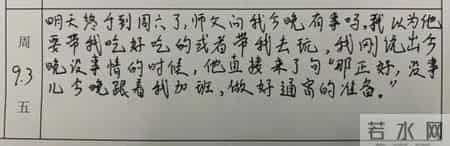 周
9.3
五
明天终于到周六了，师父问我今晚有事吗。我以为他
要带我吃好吃的或者带我去玩，我刚说出今
晚没事情的时候，他直接来了句“那正好，没事
儿今晚跟着我加班，做好通宵的准备。”
若水网